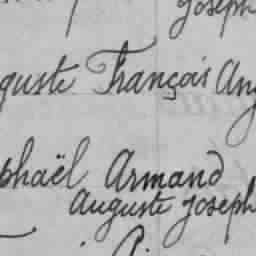 Joseph
guste François Aug
phaël Armand
Auguste Joseph